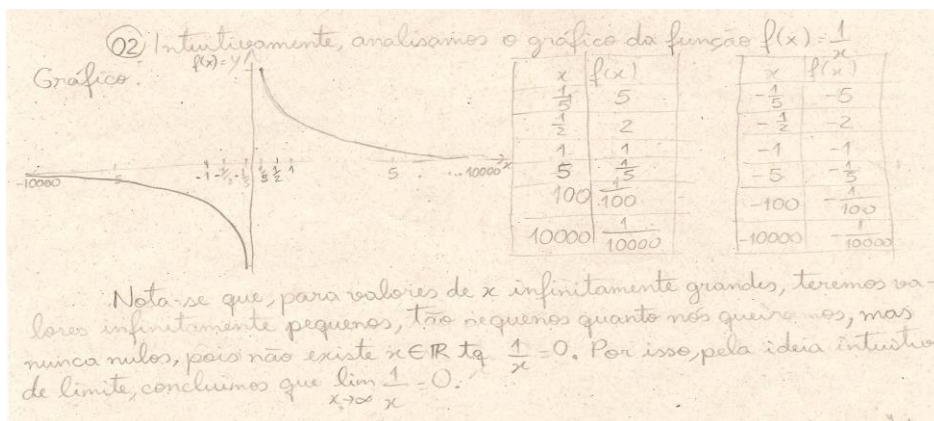 02 Intuitivamente, analisamos o gráfico da função f(x) = 1/x
Gráfico.
f(x)=y
-10000 5 -1 -1/2 -1/5 1/5 1/2 1 5 ...10000 x
x f(x)
1/5 5
1/2 2
1 1
5 1/5
100 1/100
10000 1/10000
x f(x)
-1/5 -5
-1/2 -2
-1 -1
-5 -1/5
-100 -1/100
-10000 -1/10000
Nota-se que, para valores de x infinitamente grandes, teremos va-
lores infinitamente pequenos, tão pequenos quanto nós queiramos, mas
nunca nulos, pois não existe x ∈ IR tq 1/x = 0. Por isso, pela ideia intuitiva
de limite, concluimos que lim x→∞ 1/x = 0.